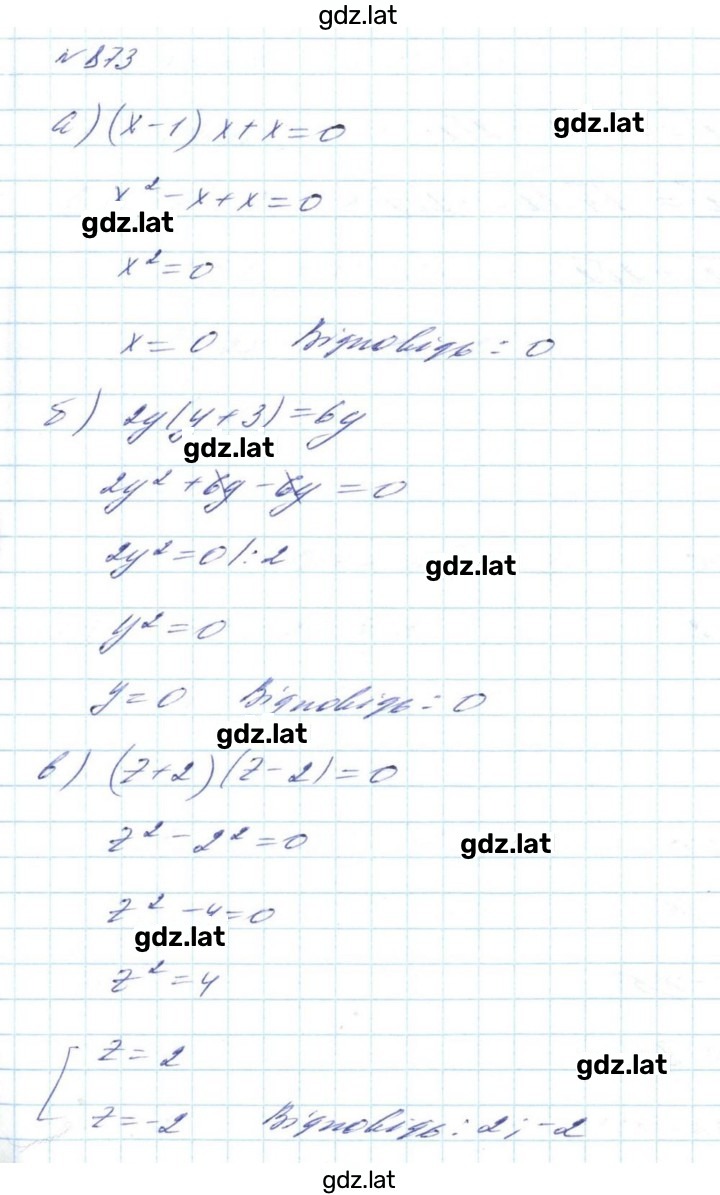 gdz.lat
№ 873
а) (x-1) x+x=0
gdz.lat
x²-x+x=0
gdz.lat
x²=0
x=0 Відповідь: 0
б) 2y(y+3)=6y
gdz.lat
2y²+6y-6y=0
2y²=0 |:2
gdz.lat
y²=0
y=0 Відповідь: 0
gdz.lat
в) (z+2)(z-2)=0
z²-2²=0
gdz.lat
z²-4=0
gdz.lat
z²=4
z=2
gdz.lat
z=-2 Відповідь: 2; -2
gdz.lat